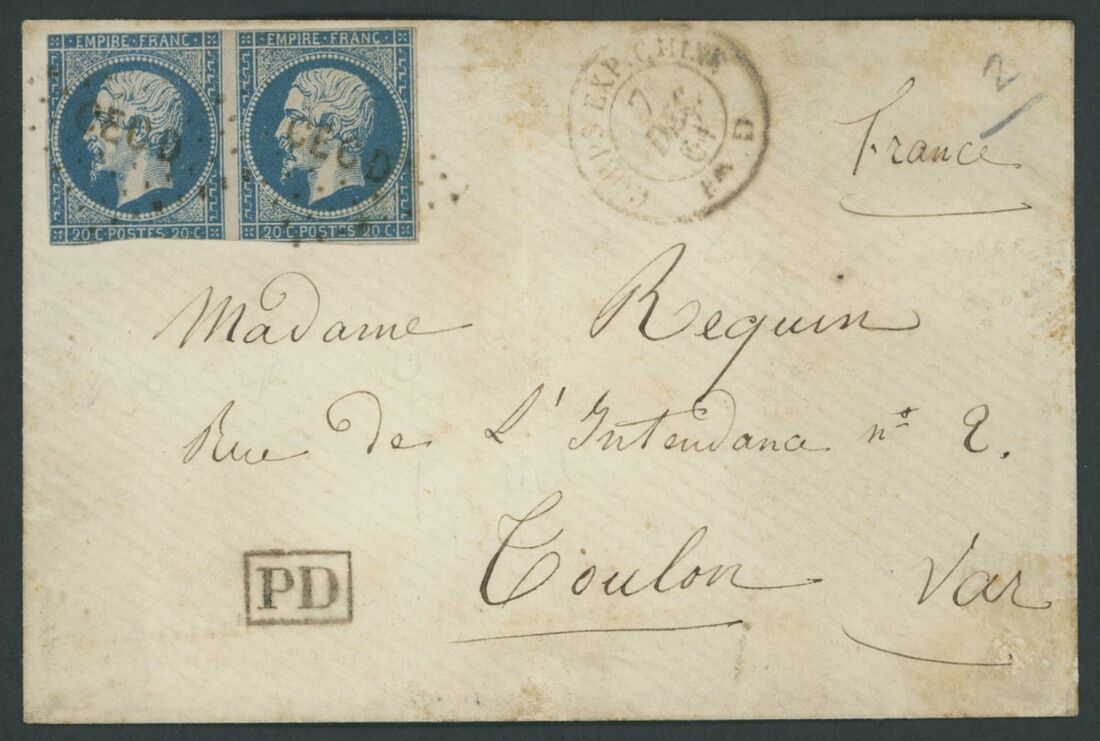 EMPIRE·FRANC· EMPIRE·FRANC·
CECD CECD
20 C·POSTES·20 C· 20 C·POSTES·20 C·
CORPS EXP. CHINE
7
DEC.
BAU D
2
France
Madame Requin
Rue de L'Intendance nº 2.
Toulon Var
PD